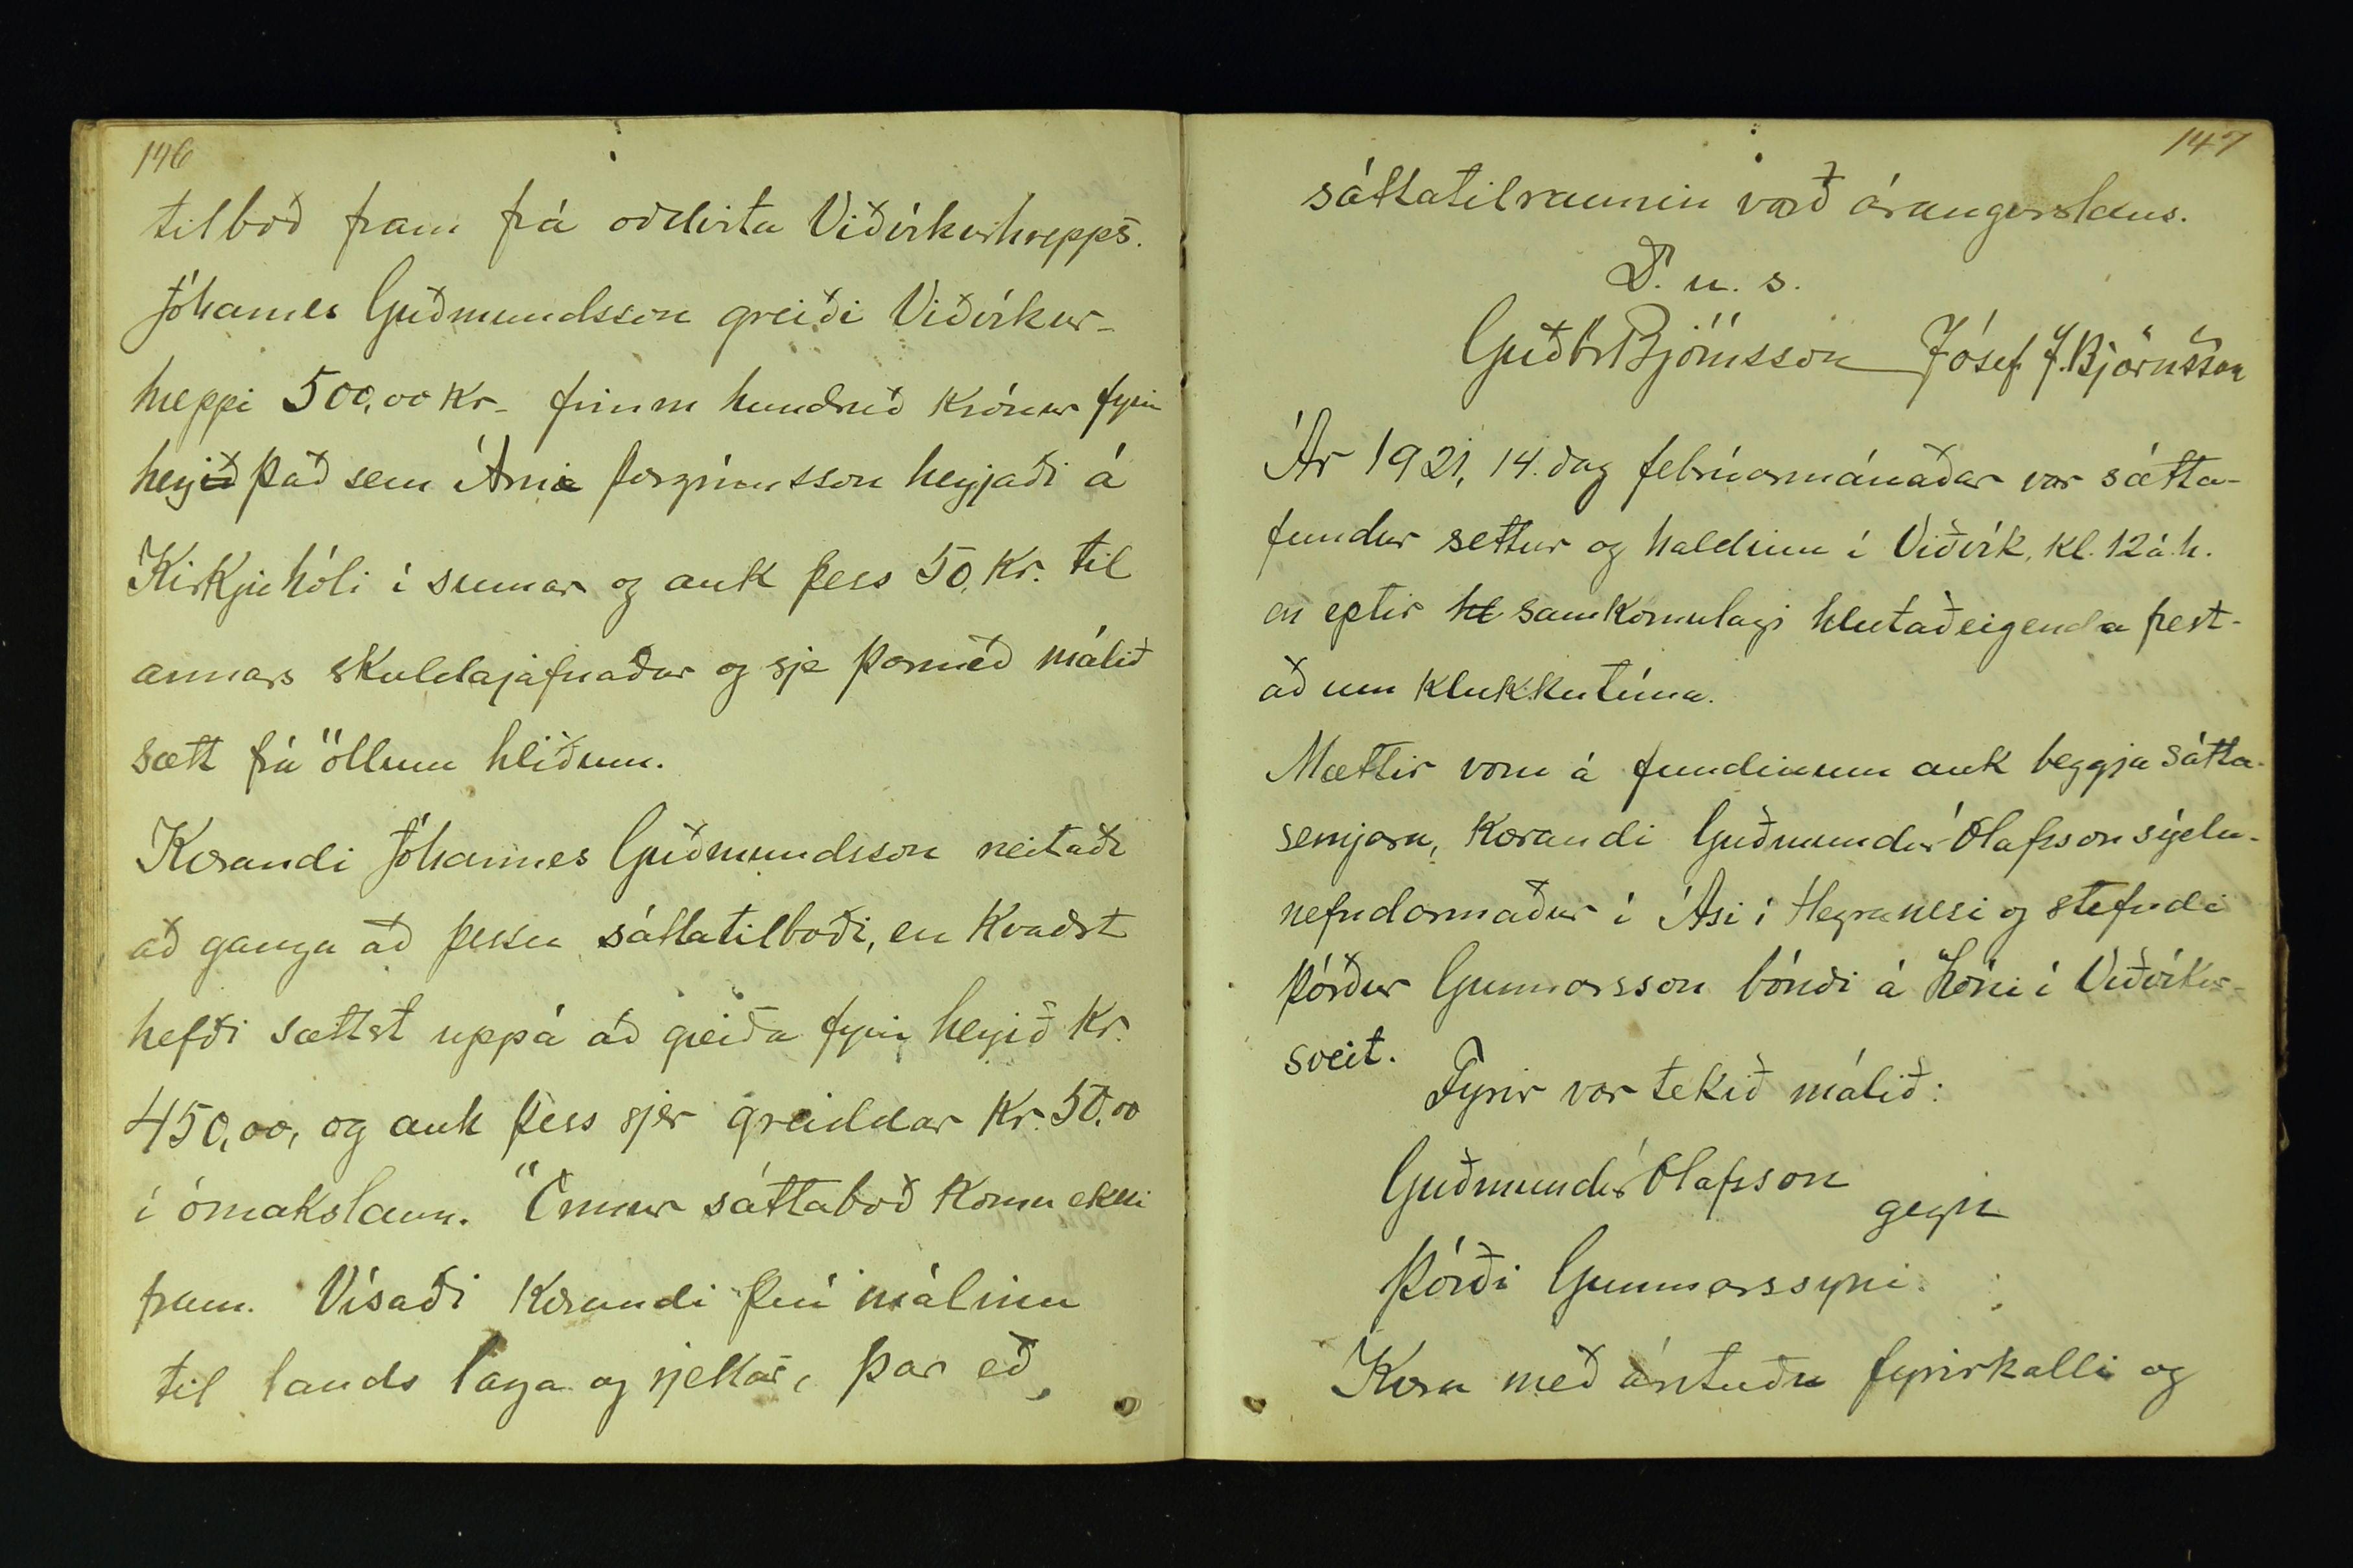 146
tilboð fram frá oddvita Viðvíkurhrepps.
Jóhannes Guðmundsson greiði Viðvíkur-
hreppi 500,00 kr. fimm hundruð krónur fyrir
heyið það sem Árni Þorgrímsson heyjaði á
Kirkjuhóli í sumar og auk þess 50. kr. til
annars skuldajafnaðar og sje þarmeð málið
sætt frá öllum hliðum.
Kærandi Jóhannes Guðmundsson neitaði
að ganga að þessu sáttatilboði, en kvaðst
hefði sættst uppá að greiða fyrir heyið kr.
450,00, og auk þess sjer greiddar kr. 50,00
í ómakslaun. Önnur sáttaboð komu ekki
fram. Vísaði kærandi því málinu
til lands laga og rjettar, þar eð
147
sáttatilraunin varð árangurslaus.
D. u. s.
Guðbr Björnsson Jósef J. Björnsson
Ár 1921, 14. dag febrúarmánaðar var sátta-
fundur settur og haldinn í Viðvík, kl. 12 á. h.
en eptir hl samkomulagi hlutaðeigenda frest-
að um klukkutíma.
Mættir voru á fundinum auk beggja sátta-
semjara, kærandi Guðmundur Ólafsson sýslu-
nefndarmaður í Ási í Hegranesi og stefndi
Þórður Gunnarsson bóndi á Lóni í Viðvíkur-
sveit.
Fyrir var tekið málið:
Guðmundur Ólafsson
gegn
Þórði Gunnarssyni.
Kæra með árituðu fyrirkalli og